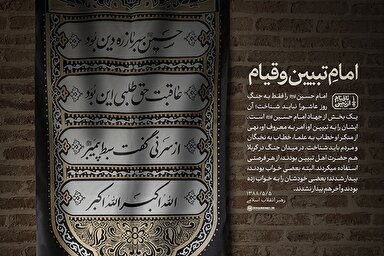 امام تبیین و قیام
امام حسین را فقط به جنگ
روز عاشورا نباید شناخت؛ آن
یک بخش از جهاد امام حسین است.
ایشان را به تبیین او، امر به معروف او، نهی
از منکر او، خطاب به علما، خطاب به نخبگان
و مردم باید شناخت. در میدان جنگ در کربلا
هم حضرت اهل تبیین بودند، از هر فرصتی
استفاده میکردند. البته بعضی خواب بودند،
بیدار شدند؛ بعضی خودشان را به خواب زده
بودند و آخر هم بیدار نشدند.
۱۳۸۸/۵/۵
رهبر انقلاب اسلامی
حسین سرباز ره دین بود
عاقبت حق طلبی این بود
از سر نی گفت سبط پیمبر
الله اکبر الله اکبر